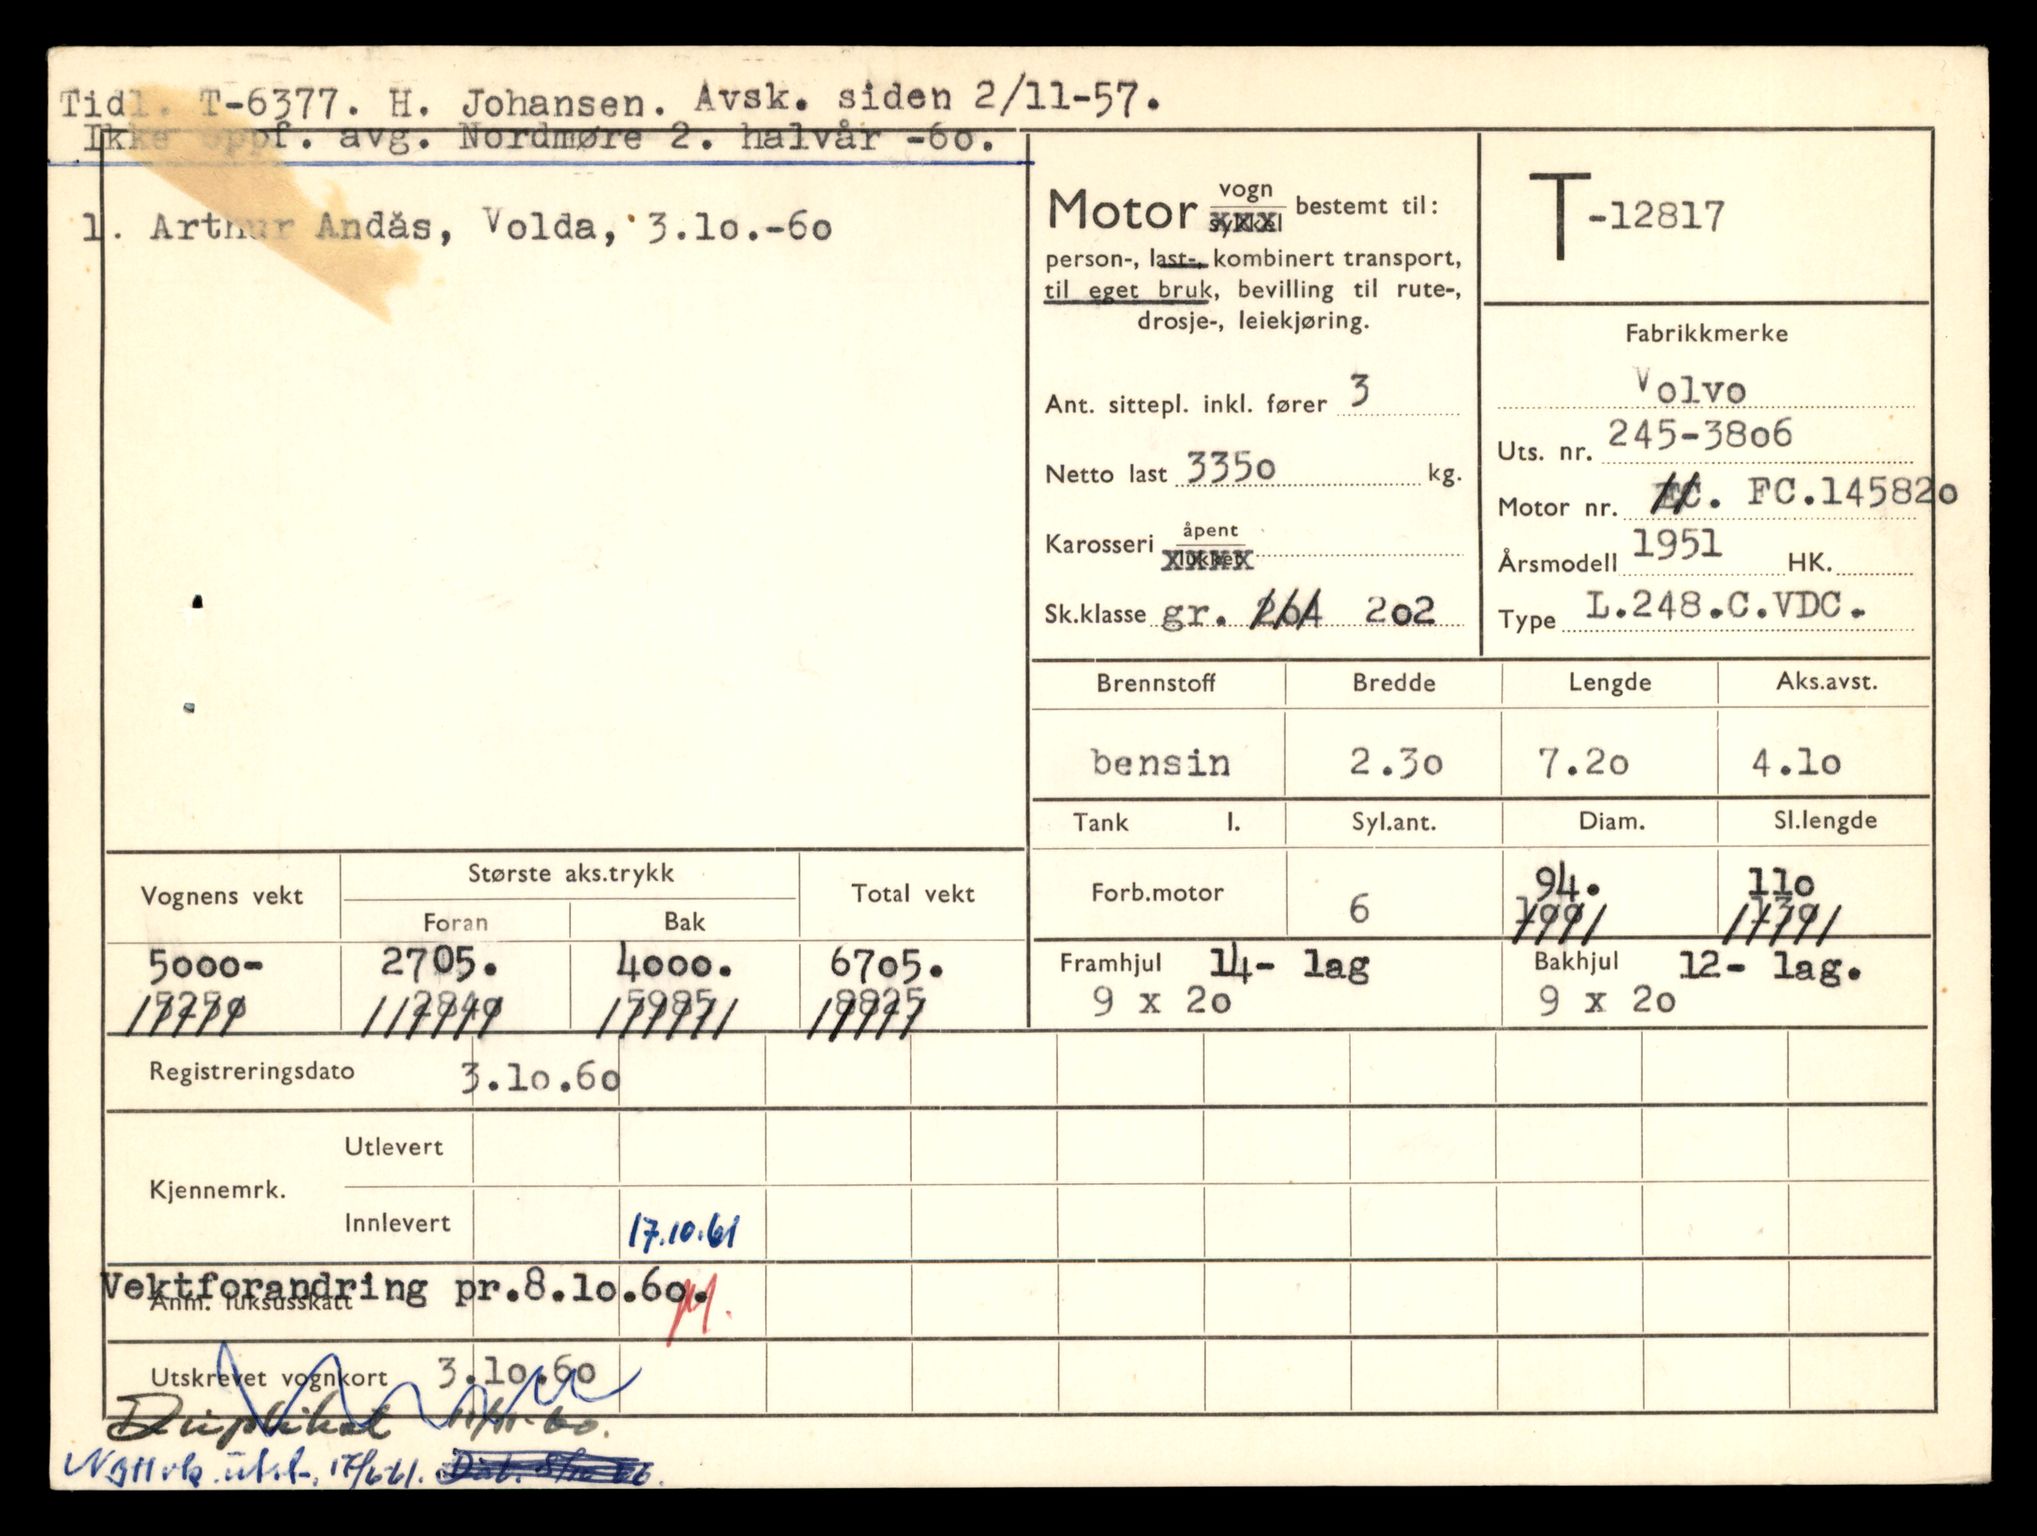 Tidl. T-6377. H. Johansen. Avsk. siden 2/11-57.
Ikke oppf. avg. Nordmøre 2. halvår -6o.
1. Arthur Andås, Volda, 3.1o.-6o
Motor vogn bestemt til:
sykkel
person-, last-, kombinert transport,
til eget bruk, bevilling til rute-,
drosje-, leiekjøring.
Ant. sittepl. inkl. fører 3
Netto last 335o kg.
Karosseri åpent
lukket
Sk.klasse gr. 2o4 2o2
T-12817
Fabrikkmerke
Volvo
Uts. nr. 245-38o6
Motor nr. FC. FC.14582o
Årsmodell 1951 HK.
Type L.248.C.VDC.
Brennstoff Bredde Lengde Aks.avst.
bensin 2.3o 7.2o 4.1o
Tank l. Syl.ant. Diam. Sl.lengde
94. 11o
Forb.motor 6
Framhjul 14- lag Bakhjul 12- lag.
9 x 2o 9 x 2o
Vognens vekt Største aks.trykk Total vekt
Foran Bak
5ooo- 27O5. 4ooo. 67o5.
284o 5985 8825
Registreringsdato 3.1o.6o
Utlevert
Kjennemrk.
Innlevert 17.10.61
Vektforandring pr.8.1o.6o.
Anm. luksusskatt
Utskrevet vognkort 3.1o.6o
Duplikat 11/11-60.